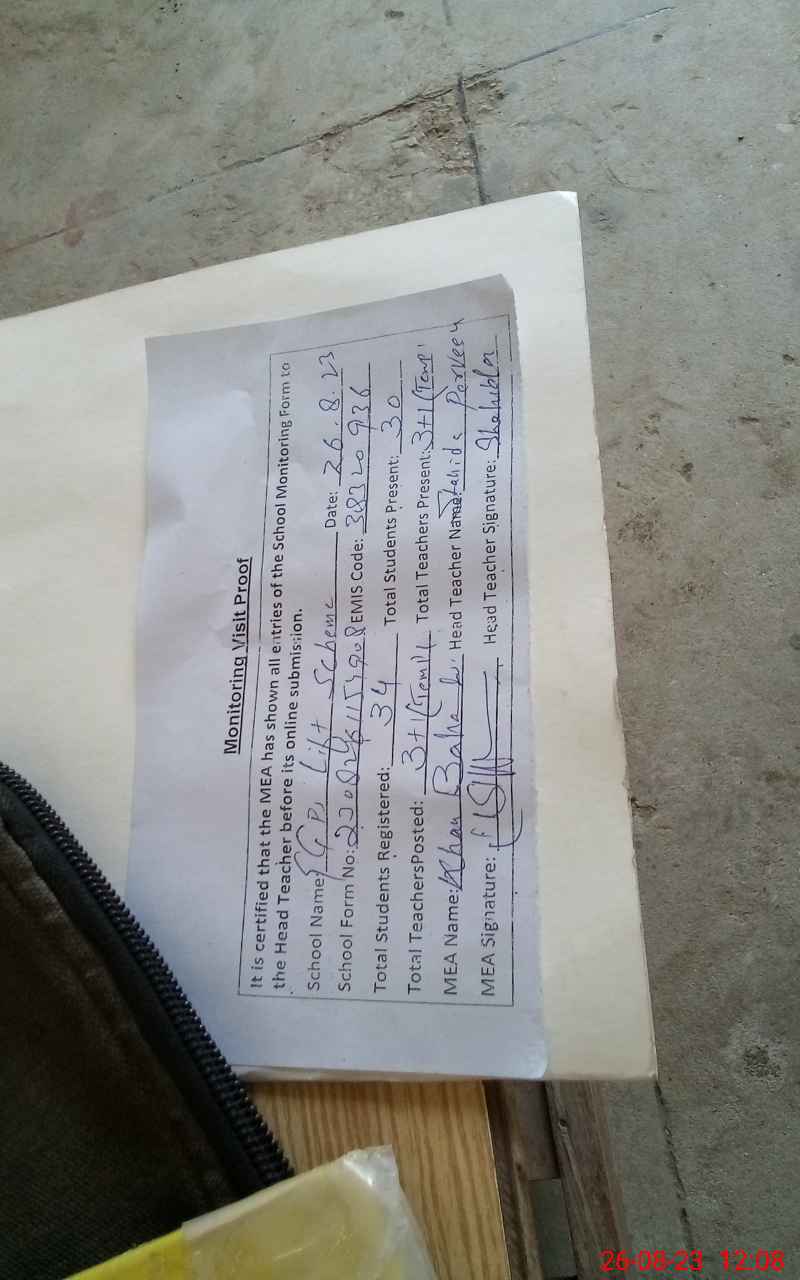 Monitoring Visit Proof
It is certified that the MEA has shown all entries of the School Monitoring Form to
the Head Teacher before its online submission.
School Name: Lift Scheme Date: 26.8.23
School Form No: EMIS Code: 38320936
Total Students Registered: 34 Total Students Present: 30
Total TeachersPosted: 3+1 Total Teachers Present: 3+1(Temp)
MEA Name: Khan Head Teacher Name: Parveen
MEA Signature: Head Teacher Signature:
26-08-23 12:08